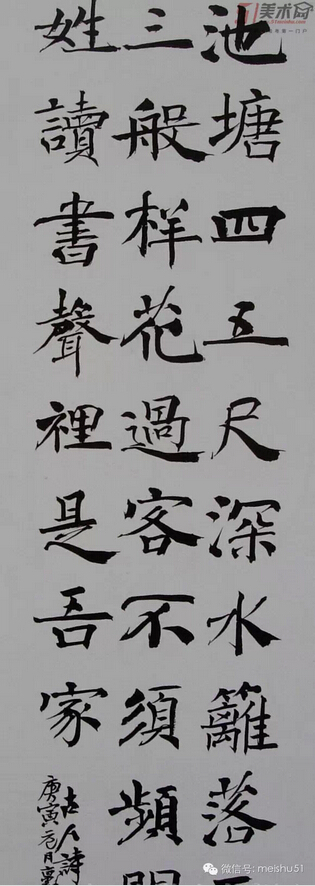 池塘四五尺深水籬落
三般样花過客不須頻
姓讀書聲裡是吾家
古人詩
庚寅元月
51美术网
微信号: meishu51